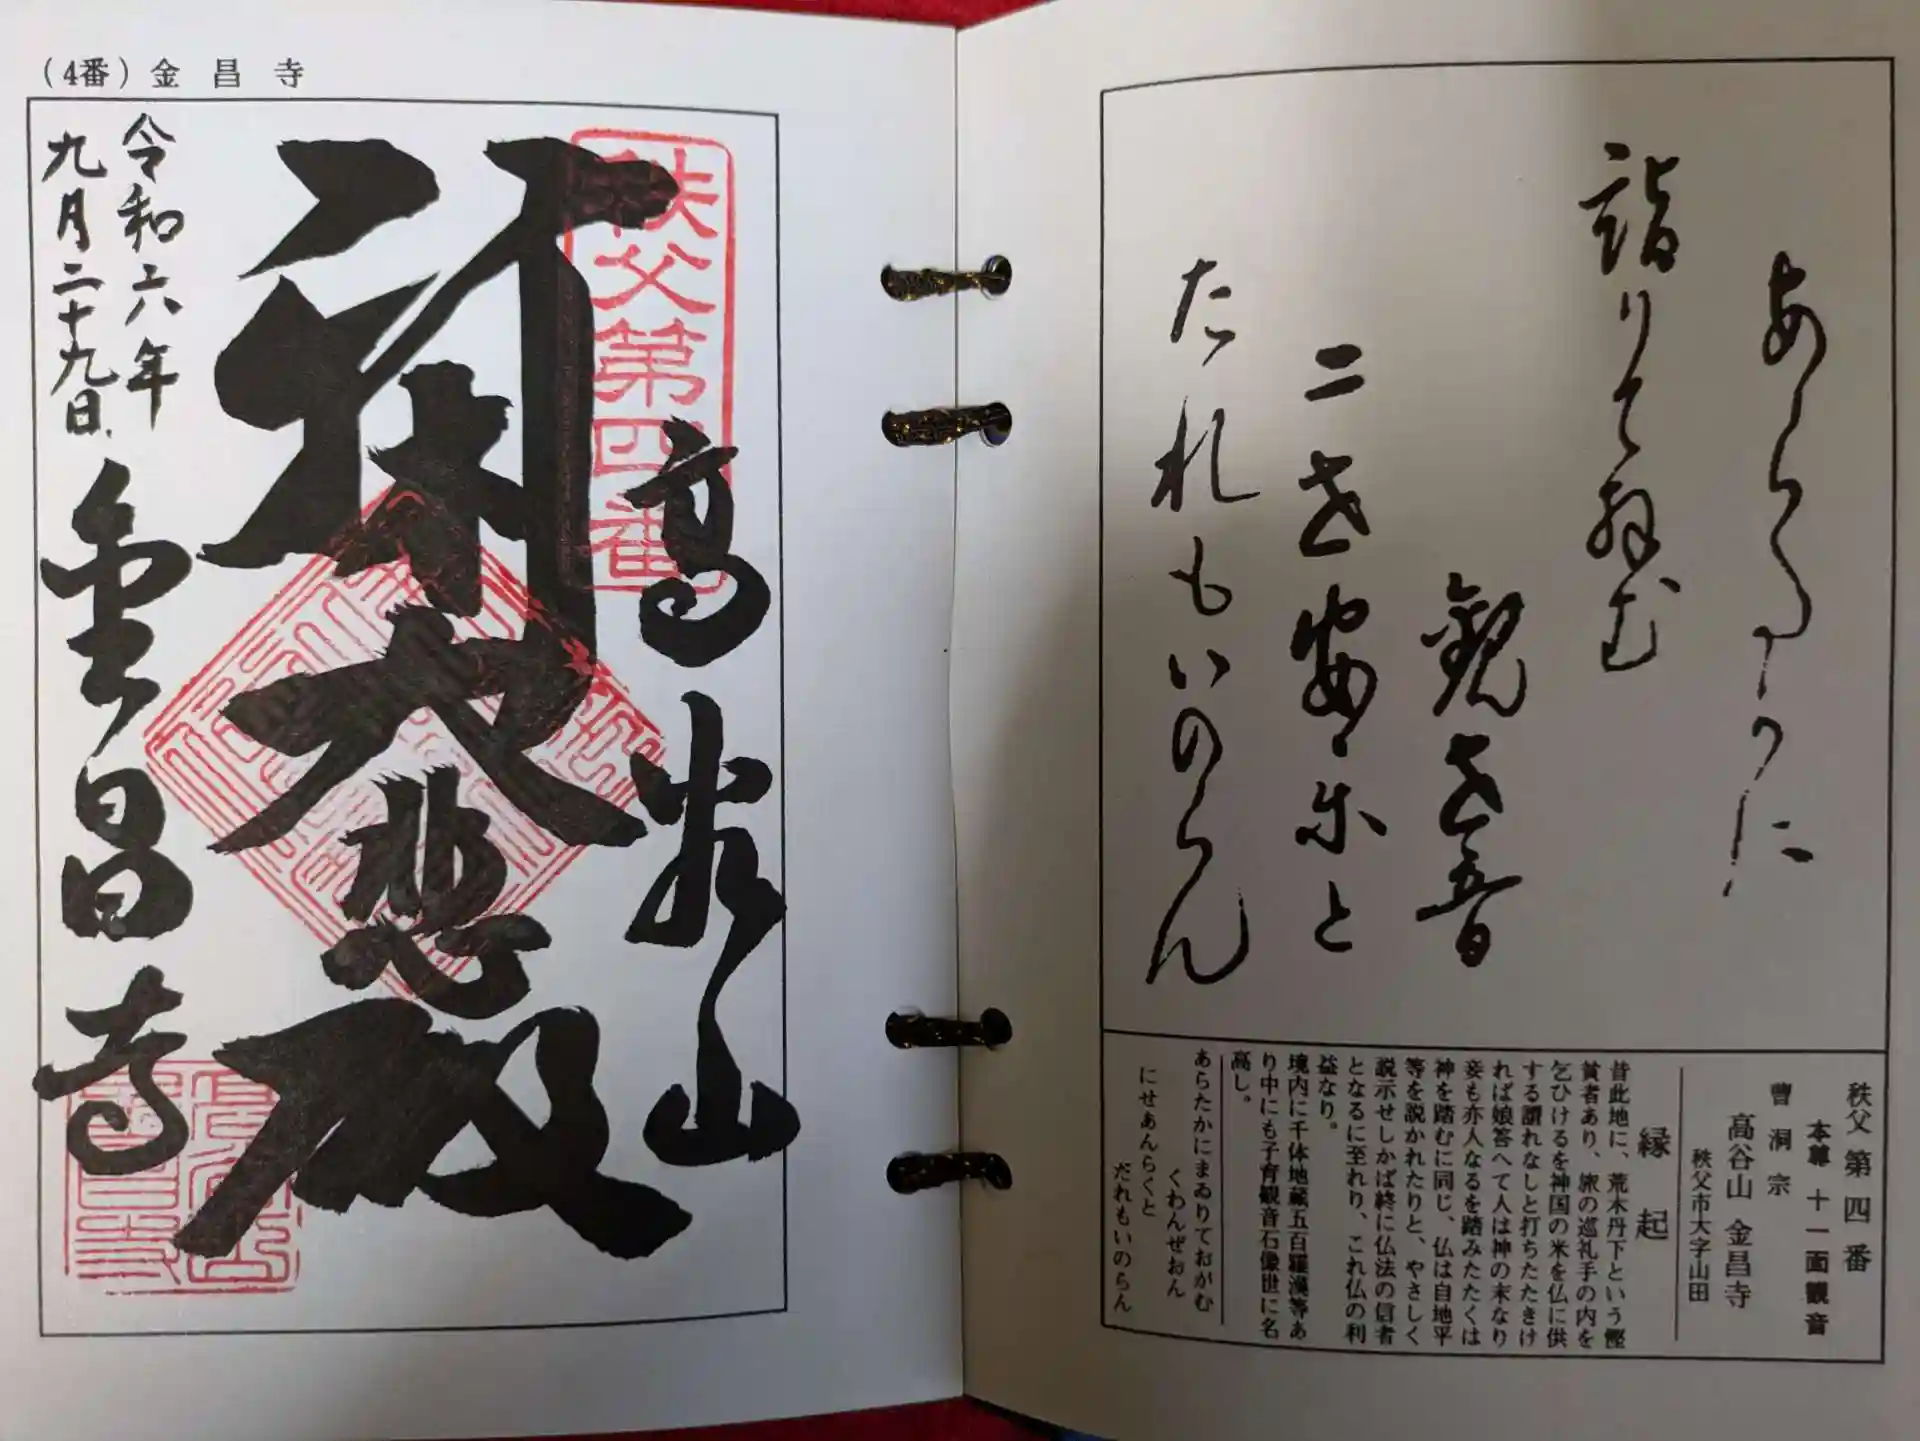 (4番) 金昌寺
秩父第四番
高谷山
大悲殿
令和六年
九月二十九日
金昌寺
あらたかに
詣りておがむ
観世音
二世安楽と
たれもいのらん
秩父第四番
本尊 十一面観音
曹洞宗
高谷山 金昌寺
秩父市大字山田
縁起
昔此地に、荒木丹下という慳
貧者あり、旅の巡礼手の内を
乞ひけるを神国の米を仏に供
する謂れなしと打ちたたきけ
れば娘答へて人は神の末なり
妾も亦人なるを踏みたたくは
神を踏むに同じ、仏は自地平
等を説かれたりと、やさしく
説示せしかば終に仏法の信者
となるに至れり、これ仏の利
益なり。
境内に千体地蔵五百羅漢等あ
り中にも子育観音石像世に名
高し。
あらたかにまゐりておがむ
くわんぜおん
にせあんらくと
だれもいのらん